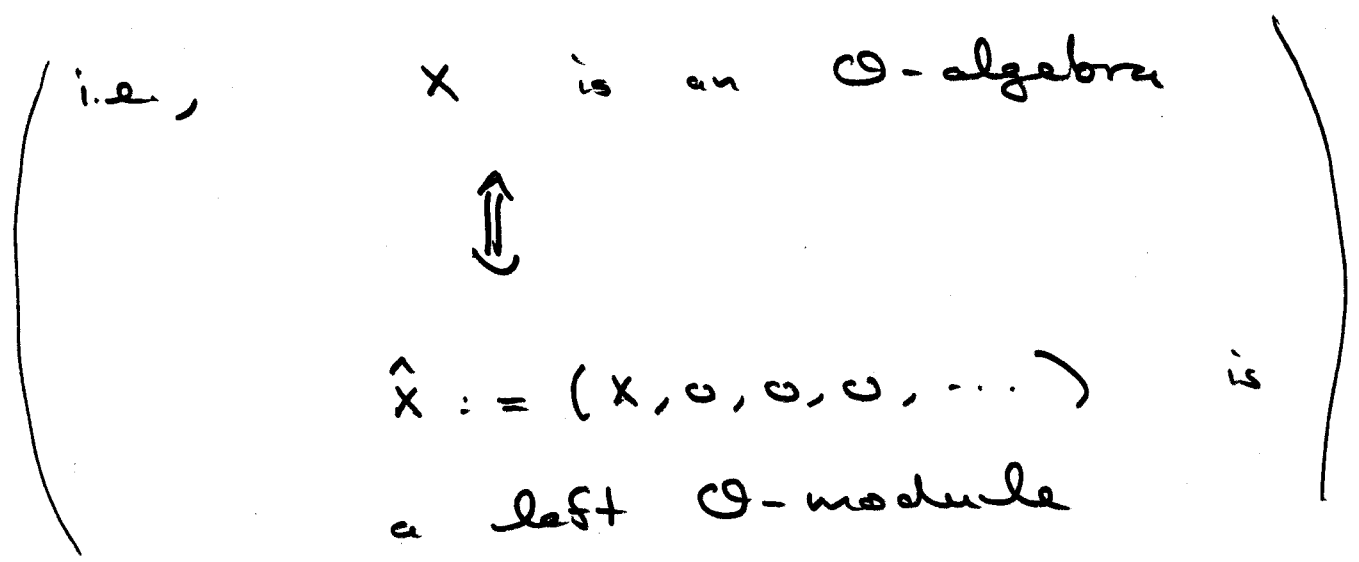 (i.e., X is an O-algebra
⇕
X̂ := (X, 0, 0, 0, ...) is
a left O-module)